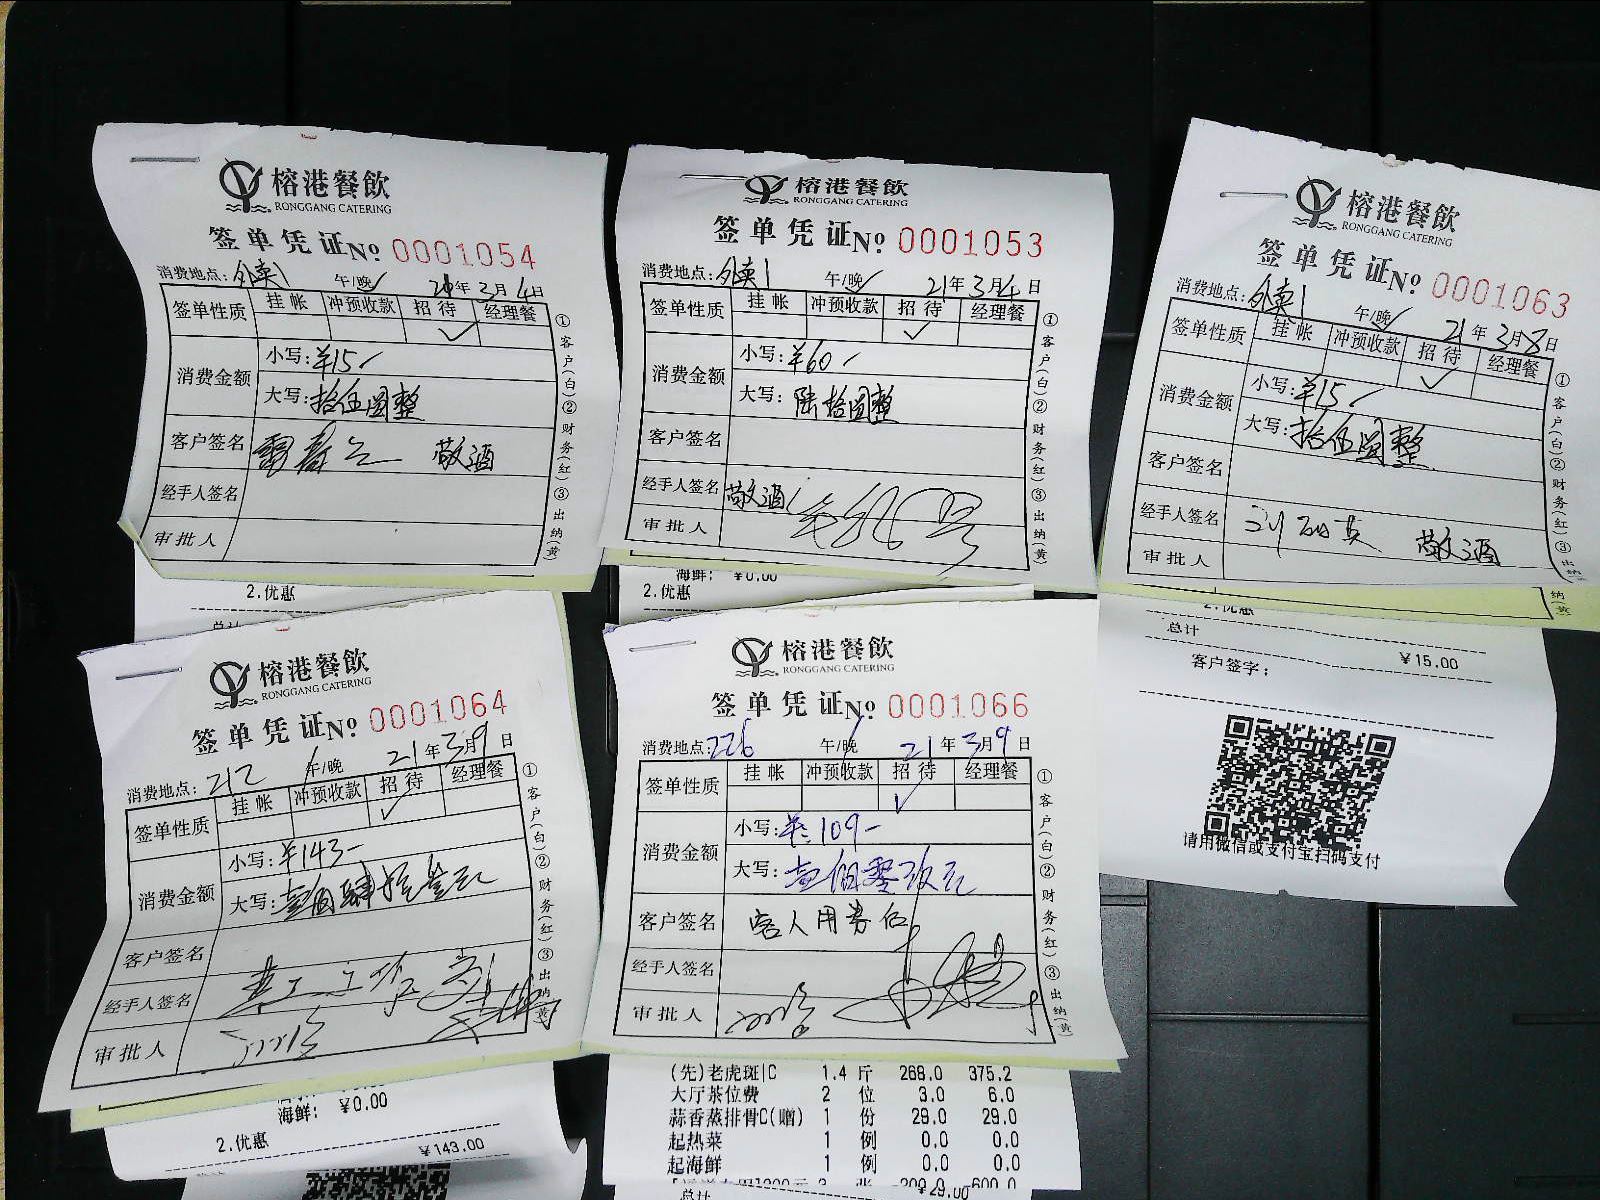 榕港餐飲
RONGGANG CATERING
签单凭证№ 0001054
消费地点:外卖1 午/晚 21年3月4日
签单性质 挂帐 冲预收款 招待 经理餐
✓
消费金额 小写:¥15/
大写:拾伍圆整
客户签名 敬酒
经手人签名
审批人
①客户(白)②财务(红)③出纳(黄)
2.优惠
总计
榕港餐飲
RONGGANG CATERING
签单凭证№ 0001053
消费地点:外卖1 午/晚 21年3月4日
签单性质 挂帐 冲预收款 招待 经理餐
✓
消费金额 小写:¥60/
大写:陆拾圆整
客户签名
经手人签名 敬酒
审批人
①客户(白)②财务(红)③出纳(黄)
海鲜: ¥0.00
2.优惠
榕港餐飲
RONGGANG CATERING
签单凭证№ 0001063
消费地点:外卖1 午/晚 21年3月8日
签单性质 挂帐 冲预收款 招待 经理餐
✓
消费金额 小写:¥15/
大写:拾伍圆整
客户签名
经手人签名 敬酒
审批人
①客户(白)②财务(红)③出纳
纳(黄)
2.优惠
总计 ¥15.00
客户签字:
请用微信或支付宝扫码支付
榕港餐飲
RONGGANG CATERING
签单凭证№ 0001064
消费地点:212 午/晚 21年3月9日
签单性质 挂帐 冲预收款 招待 经理餐
✓
消费金额 小写:¥143-
大写:壹佰肆拾叁元
客户签名
经手人签名
审批人
①客户(白)②财务(红)③出纳(黄)
海鲜: ¥0.00
2.优惠
¥143.00
榕港餐飲
RONGGANG CATERING
签单凭证№ 0001066
消费地点:226 午/晚 21年3月9日
签单性质 挂帐 冲预收款 招待 经理餐
✓
消费金额 小写:¥:109-
大写:壹佰零玖元
客户签名 客人用券后
经手人签名
审批人
①客户(白)②财务(红)③出纳(黄)
(先)老虎斑|C 1.4 斤 268.0 375.2
大厅茶位费 2 位 3.0 6.0
蒜香蒸排骨C(赠) 1 份 29.0 29.0
起热菜 1 例 0.0 0.0
起海鲜 1 例 0.0 0.0
3 张 -200.0 -600.0
总计 ¥29.00